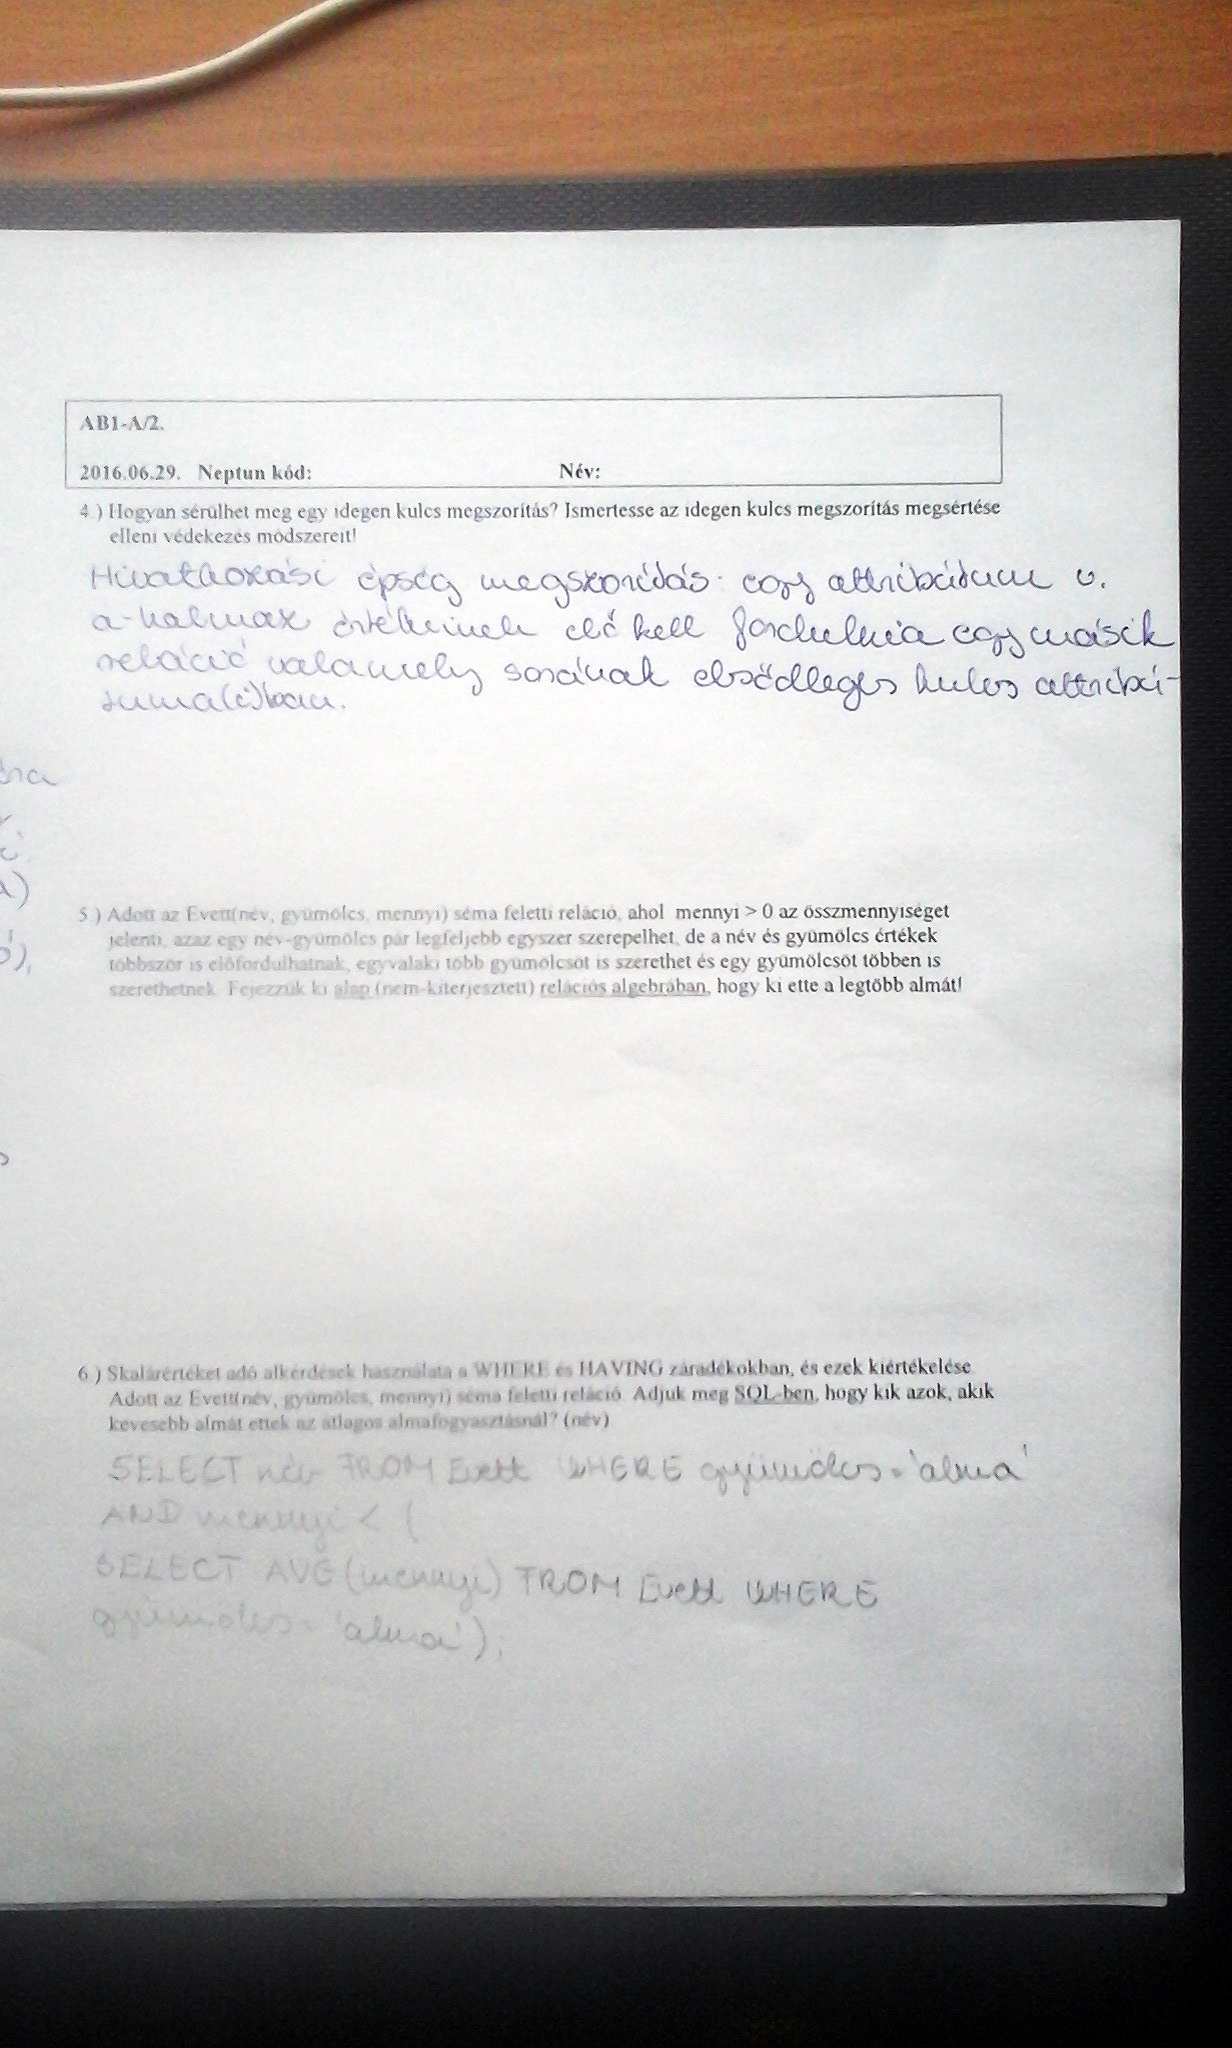 AB1-A/2.
2016.06.29. Neptun kód: Név:
4.) Hogyan sérülhet meg egy idegen kulcs megszorítás? Ismertesse az idegen kulcs megszorítás megsértése
elleni védekezés módszereit!
Hivatkozási épség megszorítás: egy attribútum v.
a-halmaz értékeinek elő kell fordulnia egy másik
reláció valamely sorának elsődleges kulcs attribú-
tuma(i)ban.
óra
5.) Adott az Evett(név, gyümölcs, mennyi) séma feletti reláció, ahol mennyi > 0 az összmennyiséget
jelenti, azaz egy név-gyümölcs pár legfeljebb egyszer szerepelhet, de a név és gyümölcs értékek
többször is előfordulhatnak, egyvalaki több gyümölcsöt is szerethet és egy gyümölcsöt többen is
szerethetnek. Fejezzük ki alap (nem-kiterjesztett) relációs algebrában, hogy ki ette a legtöbb almát!
6.) Skalárértéket adó alkérdések használata a WHERE és HAVING záradékokban, és ezek kiértékelése.
Adott az Evett(név, gyümölcs, mennyi) séma feletti reláció. Adjuk meg SQL-ben, hogy kik azok, akik
kevesebb almát ettek az átlagos almafogyasztásnál? (név)
SELECT név FROM Evett WHERE gyümölcs = 'alma'
AND mennyi < (
SELECT AVG(mennyi) FROM Evett WHERE
gyümölcs = 'alma');